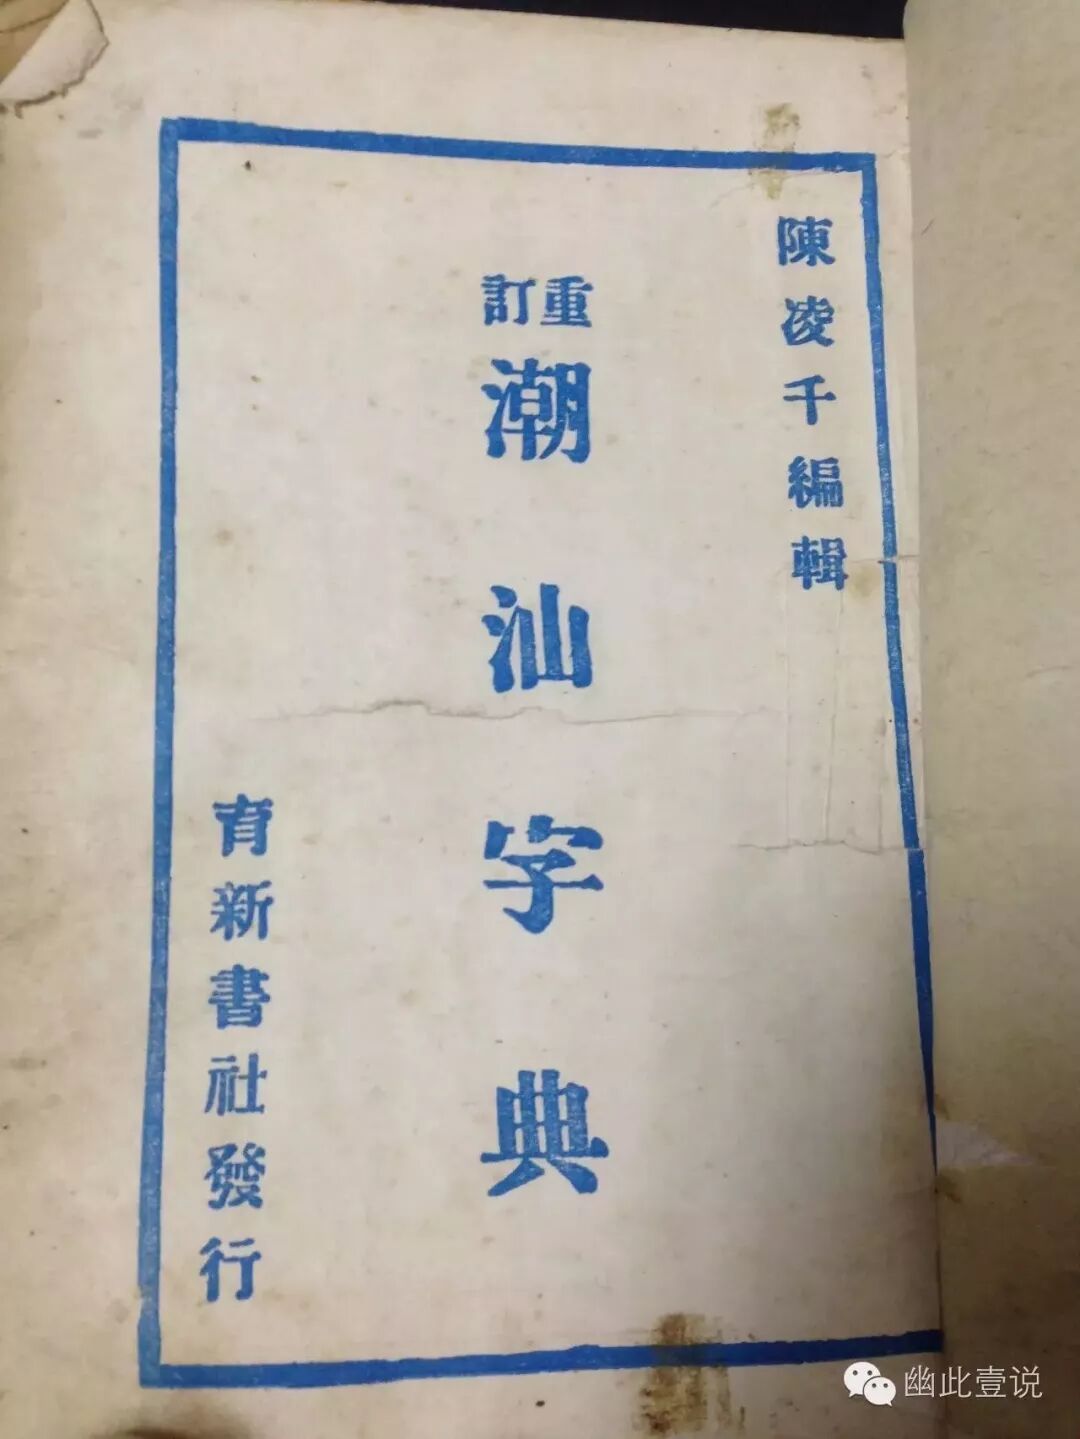 陳凌千編輯
重訂
潮汕字典
育新書社發行
幽此壹说